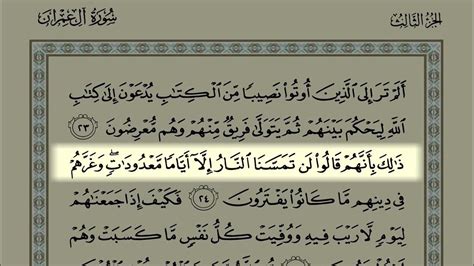 الجزء الثالث
سورة آل عمران
أَلَمْ تَرَ إِلَى ٱلَّذِينَ أُوتُوا۟ نَصِيبًا مِّنَ ٱلْكِتَٰبِ يُدْعَوْنَ إِلَىٰ كِتَٰبِ
ٱللَّهِ لِيَحْكُمَ بَيْنَهُمْ ثُمَّ يَتَوَلَّىٰ فَرِيقٌ مِّنْهُمْ وَهُم مُّعْرِضُونَ ٢٣
ذَٰلِكَ بِأَنَّهُمْ قَالُوا۟ لَن تَمَسَّنَا ٱلنَّارُ إِلَّآ أَيَّامًا مَّعْدُودَٰتٍ ۖ وَغَرَّهُمْ
فِى دِينِهِم مَّا كَانُوا۟ يَفْتَرُونَ ٢٤ فَكَيْفَ إِذَا جَمَعْنَٰهُمْ
لِيَوْمٍ لَّا رَيْبَ فِيهِ وَوُفِّيَتْ كُلُّ نَفْسٍ مَّا كَسَبَتْ وَهُمْ